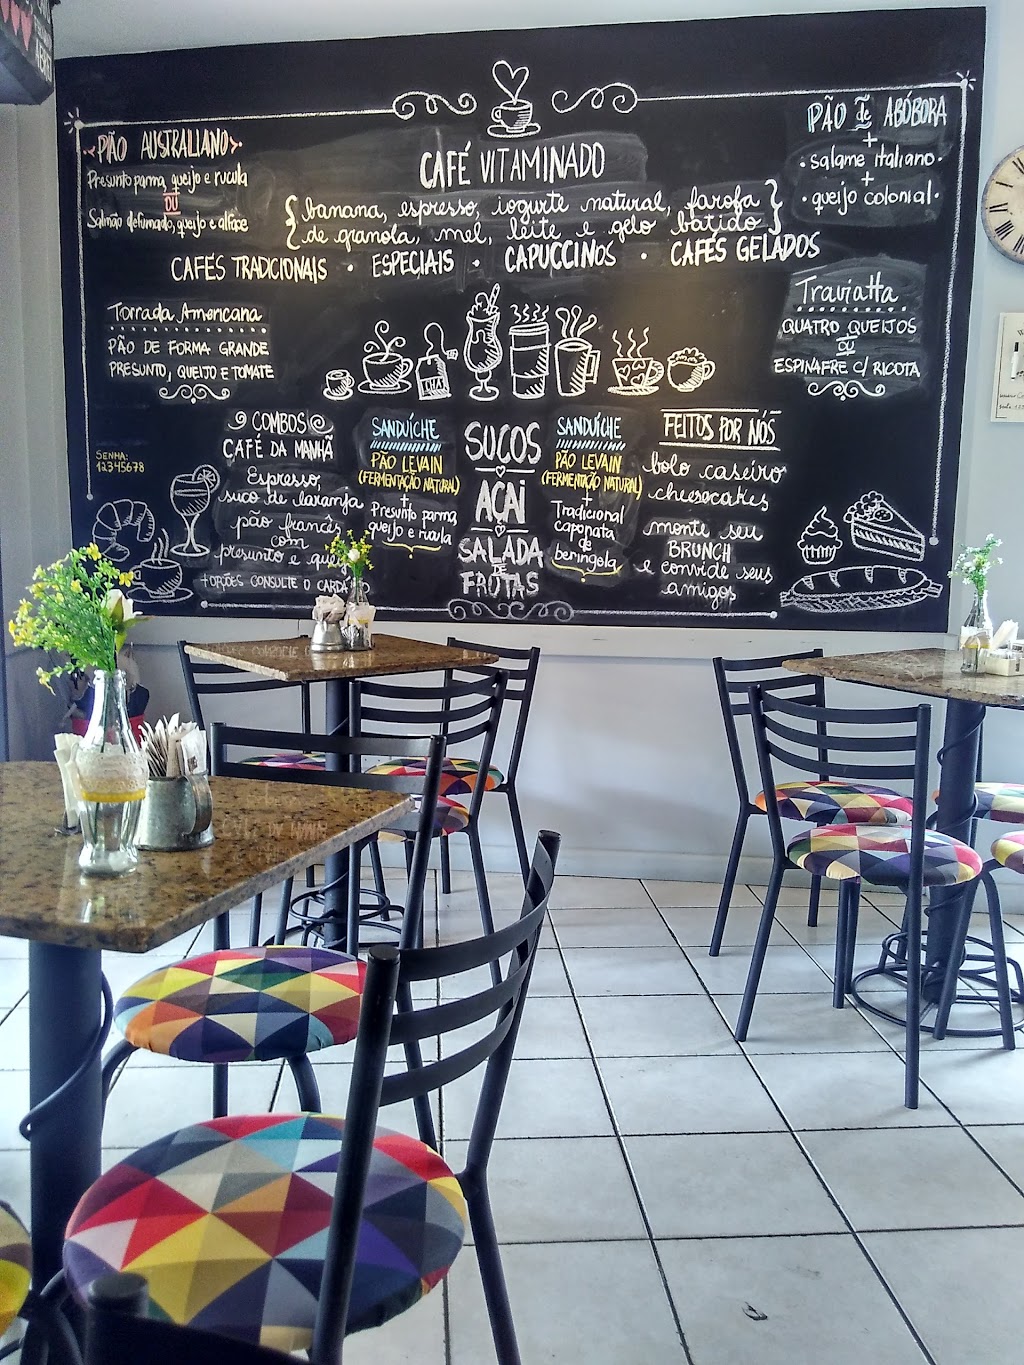 PÃO AUSTRALIANO
Presunto parma, queijo e rucula
OU
Salmão defumado, queijo e alface
CAFÉ VITAMINADO
{ banana, espresso, iogurte natural, farofa
de granola, mel, leite e gelo batido }
CAFÉS TRADICIONAIS • ESPECIAIS • CAPUCCINOS • CAFÉS GELADOS
PÃO de ABÓBORA
+
• salame italiano •
+
• queijo colonial •
Torrada Americana
PÃO DE FORMA GRANDE
PRESUNTO, QUEIJO E TOMATE
CHÁS
Traviatta
QUATRO QUEIJOS
OU
ESPINAFRE C/ RICOTA
SENHA:
12345678
COMBOS
CAFÉ DA MANHÃ
Espresso,
suco de laranja
pão francês
com
presunto e
CONSULTE O
SANDUÍCHE
PÃO LEVAIN
(FERMENTAÇÃO NATURAL)
+
Presunto parma,
queijo e rucula
SUCOS
AÇAÍ
SALADA
DE
FRUTAS
SANDUÍCHE
PÃO LEVAIN
(FERMENTAÇÃO NATURAL)
+
Tradicional
caponata
de
beringela
FEITOS POR NÓS
bolo caseiro
cheesecakes
monte seu
BRUNCH
e convide seus
amigos